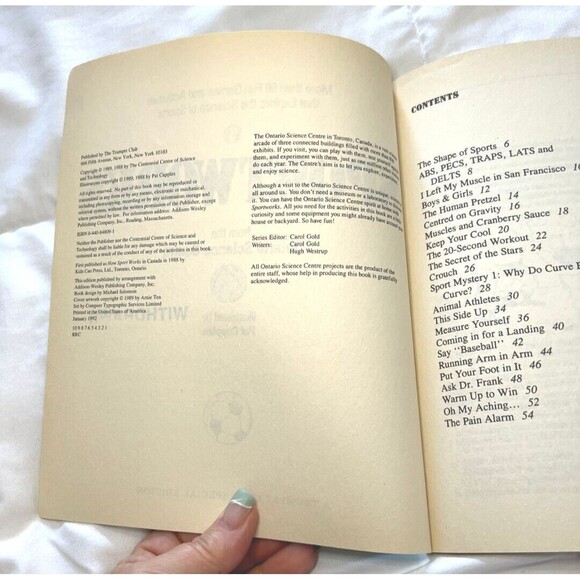 Published by The Trumpet Club
666 Fifth Avenue, New York, New York 10103
Copyright © 1989, 1988 by The Centennial Centre of Science
and Technology
Illustrations copyright © 1989, 1988 by Pat Cupples
All rights reserved. No part of this book may be reproduced or
transmitted in any form or by any means, electronic or mechanical,
including photocopying, recording or by any information storage and
retrieval system, without the written permission of the Publisher, except
where permitted by law. For information address: Addison-Wesley
Publishing Company, Inc., Reading, Massachusetts.
ISBN
Neither the Publisher nor the Centennial Centre of Science and
Technology shall be liable for any damage which may be caused or
sustained as a result of the conduct of any of the activities in this book.
First published as How Sport Works in Canada in 1988 by
Kids Can Press, Ltd., Toronto, Ontario
This edition published by arrangement with
Addison-Wesley Publishing Company, Inc.
Book design by Michael Solomon
Cover artwork copyright © 1989 by Arnie Ten
Set by Compset Typographic Services Limited
Printed in the United States of America
January 1992
10 9 8 7 6 5 4 3 2 1
RRC
The Ontario Science Centre in Toronto, Canada, is a vast
arcade of three connected buildings filled with more than
exhibits. If you visit, you can play with them, test yourself
them, and experiment with them, just as one million other
The Centre's aim is to let you explore, discover
and enjoy science.
Although a visit to the Ontario Science Centre is unique, science is
all around us. You don't need a museum or a laboratory to explore
it. You can have the Ontario Science Centre spirit at home with
Sportworks. All you need for the activities in this book are your
curiosity and some equipment you might already have around the
house or backyard. So have fun!
Series Editor: Carol Gold
Writers: Carol Gold
Hugh Westrup
All Ontario Science Centre projects are the product of the
entire staff, whose help in producing this book is gratefully
acknowledged.
CONTENTS
The Shape of Sports 6
ABS, PECS, TRAPS, LATS and
DELTS 8
I Left My Muscle in San Francisco 10
Boys & Girls 12
The Human Pretzel 14
Centred on Gravity 16
Muscles and Cranberry Sauce 18
Keep Your Cool 20
The 20-Second Workout 22
The Secret of the Stars 24
Crouch 26
Sport Mystery 1: Why Do Curve
Curve? 28
Animal Athletes 30
This Side Up 34
Measure Yourself 36
Coming in for a Landing 40
Say "Baseball" 42
Running Arm in Arm 44
Put Your Foot in It 46
Ask Dr. Frank 48
Warm Up to Win 50
Oh My Aching... 52
The Pain Alarm 54